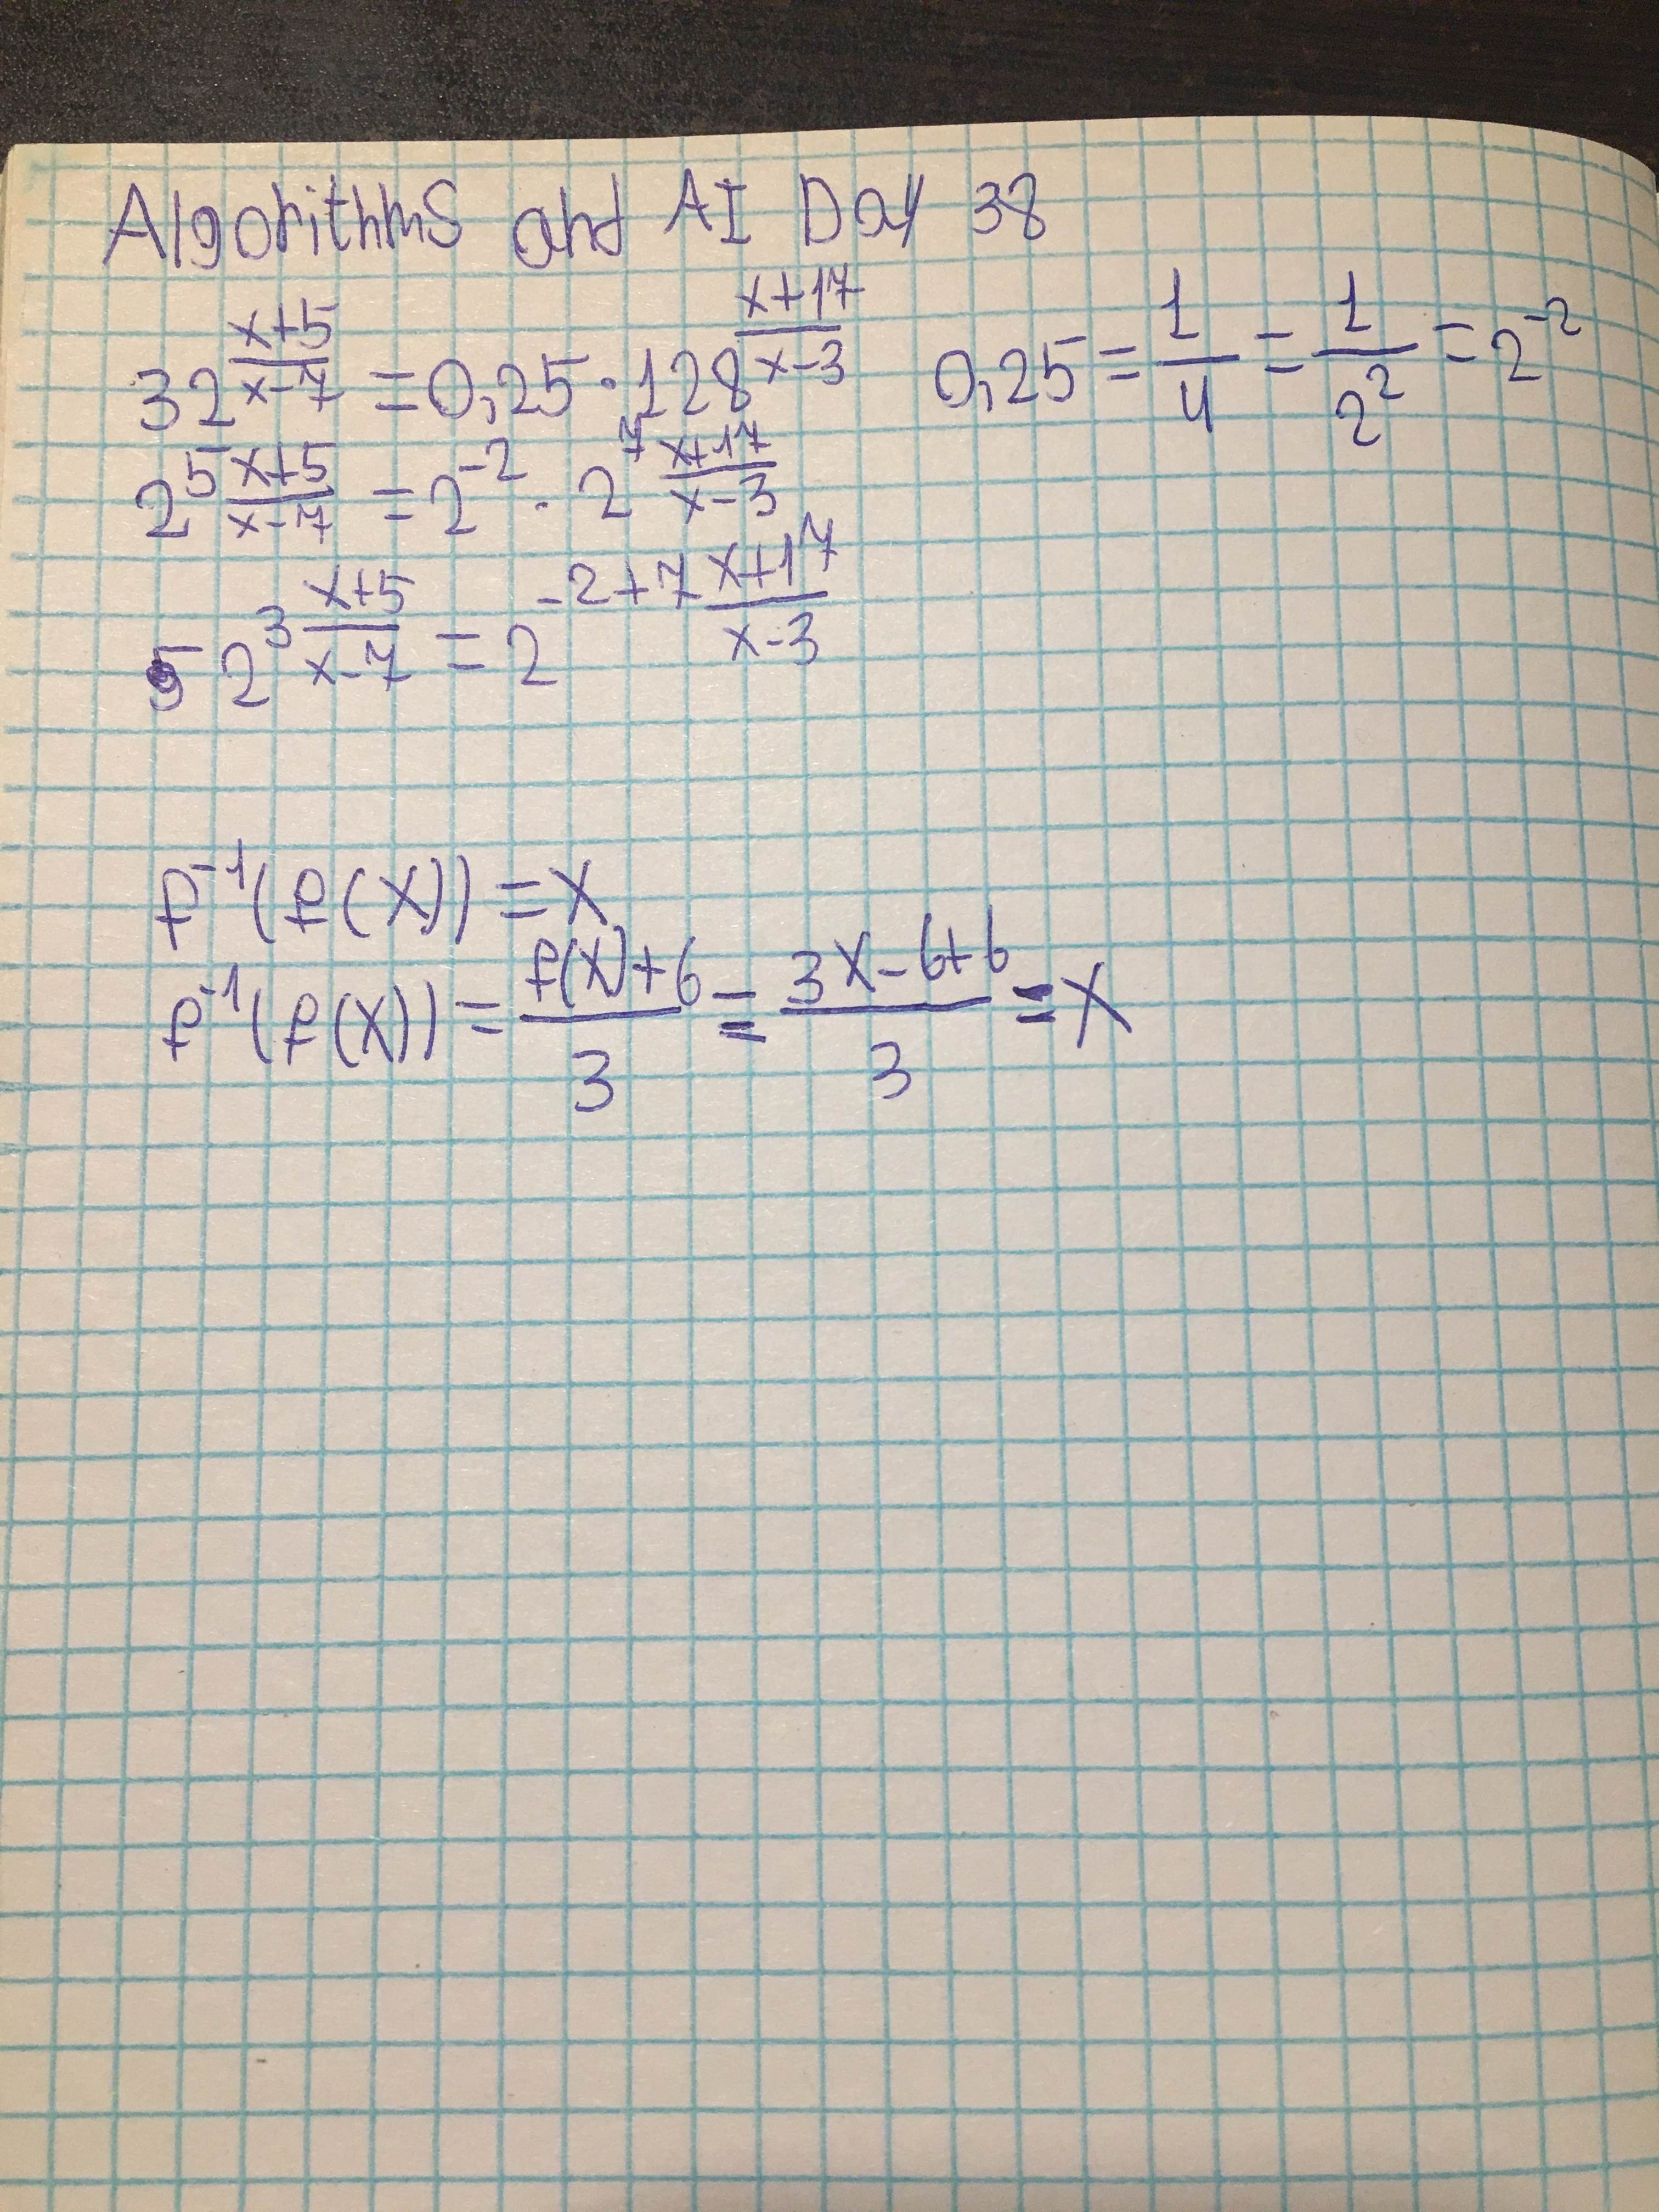 Algorithms and AI Day 38
32^((x+5)/(x-7)) = 0,25 · 128^((x+17)/(x-3))    0,25 = 1/4 = 1/2^2 = 2^-2
2^(5 (x+5)/(x-7)) = 2^-2 · 2^(7 (x+17)/(x-3))
5 2^(3 (x+5)/(x-7)) = 2^(-2+7 (x+17)/(x-3))
f^-1(f(x)) = x
f^-1(f(x)) = (f(x)+6)/3 = (3x-6+6)/3 = x